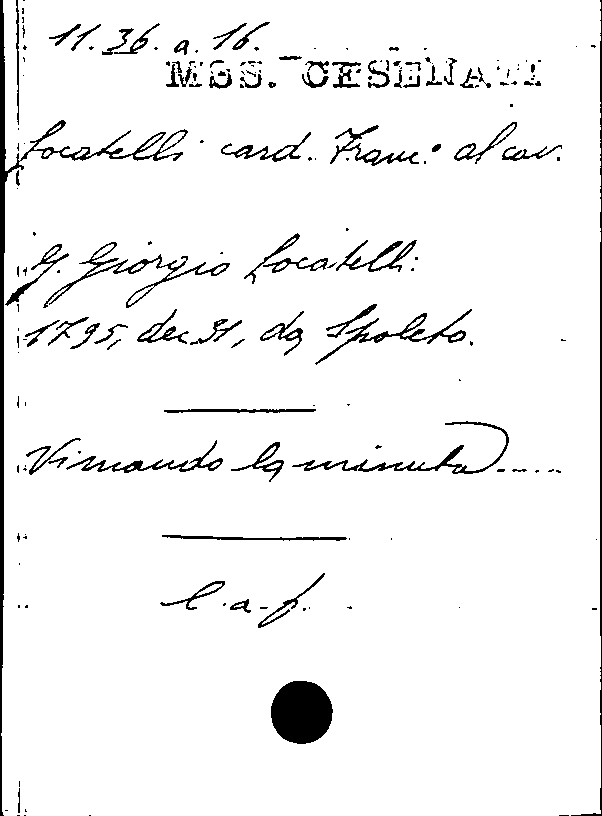 11.36.a.16.
MSS. CESENATI
Locatelli card. Franc.o al cav.
G. Giorgio Locatelli:
1795, dec 31, da Spoleto.
Vi mando la minuta.....
l.a.f.